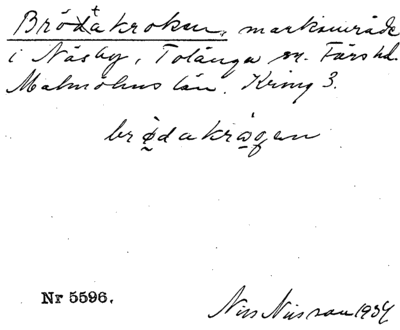 Brödåkroken, markområde
i Näsby, Tolånga sn. Färs hd.
Malmöhus län. Kring 3.
brødakrågen
Nr 5596.
Nils Nilsson 1934